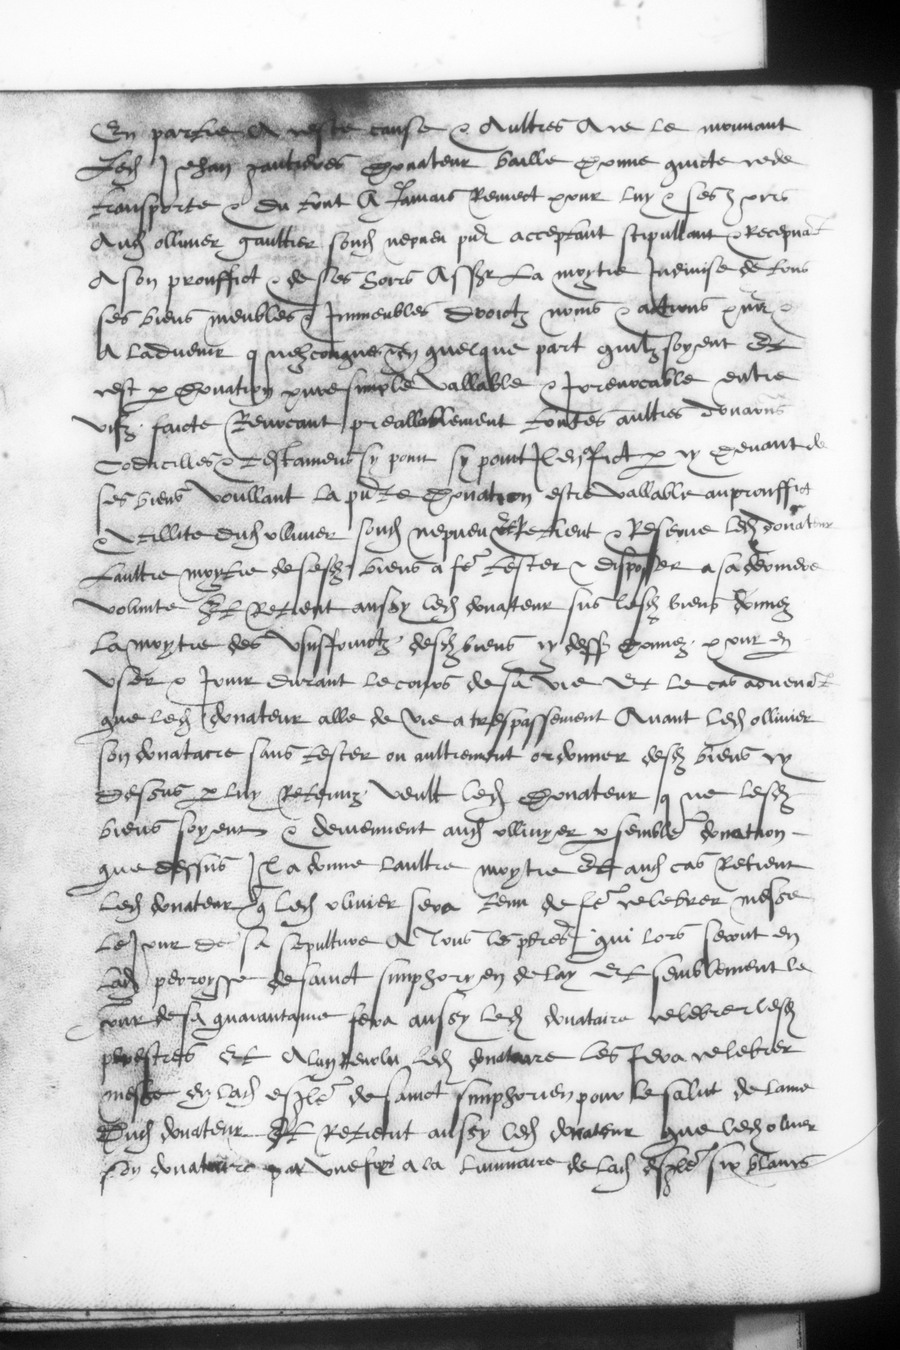 En partie A ceste cause & Aultres A ce le mouvant
Led Jehan gaultier donateur baille donne quicte cede
transporte & du tout A Jamais Remect pour luy & ses hoirs
Aud ollivier gaultier sond nepveu pnt acceptant stipullant & Recepvant
A son prouffict & de ses hoirs la moytie Indivise de tous
ses biens meubles & Immeubles droictz noms & actions &
A ladvenir quelque part quilz soyent Et
cest donation pure simple vallable & Irrevocable entre
vifz faicte Revocant preallablement toutes aultres donations
Codicilles & testamens sy point sy point Il en fict p cy devant de
ses biens voullant la pnte donation estre vallable au prouffict
& utillite dud ollivier sond nepveu Et Retient & Reserve led donateur
laultre moytie de sesd biens a fe tester & disposer a sa derniere
volunte Et Retient aussy led donateur sus lesd biens donnez
la moytie des usuffruictz desd biens cy dess donnez pour en
user & Jouir durant le cours de sa vie Et le cas advenat
que led donateur alle de vie a trespassement Avant led ollivier
son donataire sans tester ou aultrement ordonner desd biens cy
dessus p luy Retenuz veult led donateur que lesd
biens soyent & deviennent aud ollivyer p semble donation
que dessus Il a donne laultre moytie Et aud cas Retient
Led donateur q led olivier sera tenu de fe celebrer messe
le Jour de sa sepulture A tous les pbres qui lors seront en
lad perroysse de sainct simphoryen de lay Et semblement le
Jour de sa quarantaine fera aussy led donataire celebrer lesd
prestres Et A lan Revolu led donataire les fera celebrer
messe en lad esgle de sainct simphorien pour le salut de lame
Dud donateur Et Retient aussy led donateur que led olivier
son donataire par une foys a la luminaire de lad esgle six blancs